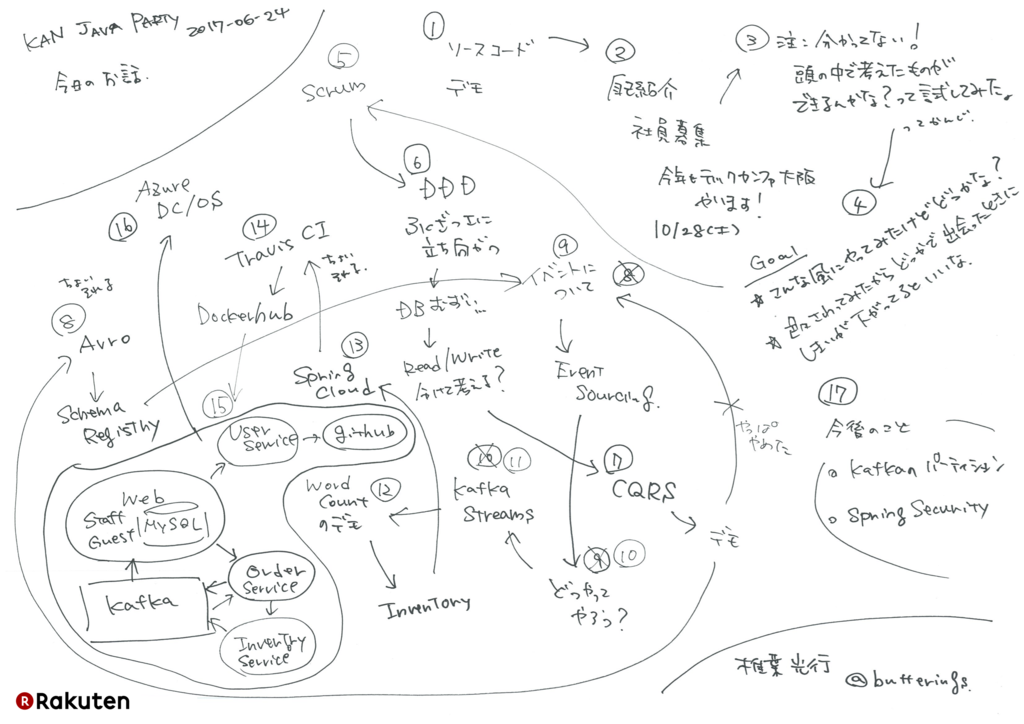 KAN JAVA PARTY 2017-06-24
今日のお話.
① ソースコード
デモ
② 自己紹介
社員募集
今年もテックカンファ大阪
やります!
10/28(土)
③ 注:分かってない!
頭の中で考えたものが
できるんかな?って試してみたよ
ってかんじ.
④ Goal
★ こんな風にやってみたけどどうかな?
しきいが下がってるといいな.
⑤ Scrum
⑥ DDD
立ち向かう
DBむずい...
Read/Write
分けて考える?
⑦ CQRS
デモ
やっぱ
やめた
⑧ ちょい
Avro
Schema
Registry
⑨ イベントに
ついて
⑧
Event
Sourcing.
⑨ ⑩
どうやって
やろう?
⑩ ⑪
Kafka
Streams
⑫ Word
Count
のデモ
Inventory
⑬ Spring
Cloud
⑭ Travis CI
ちょい
Dockerhub
⑮
User
Service
github
Web
Staff
Guest
MySQL
Order
Service
Kafka
Inventry
Service
⑯ Azure
DC/OS
⑰
今後のこと
○ Kafkaのパーティション
○ Spring Security
椎葉 光行
@bufferings.
Rakuten